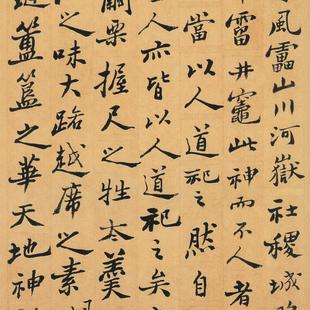 風靁山川河嶽社稷城
霤井竈此神而不人者
當以人道祀之然自
之人亦皆以人道祀之矣
繭栗握尺之牲太羹
之味大路越席之素
簠簋之華天地神